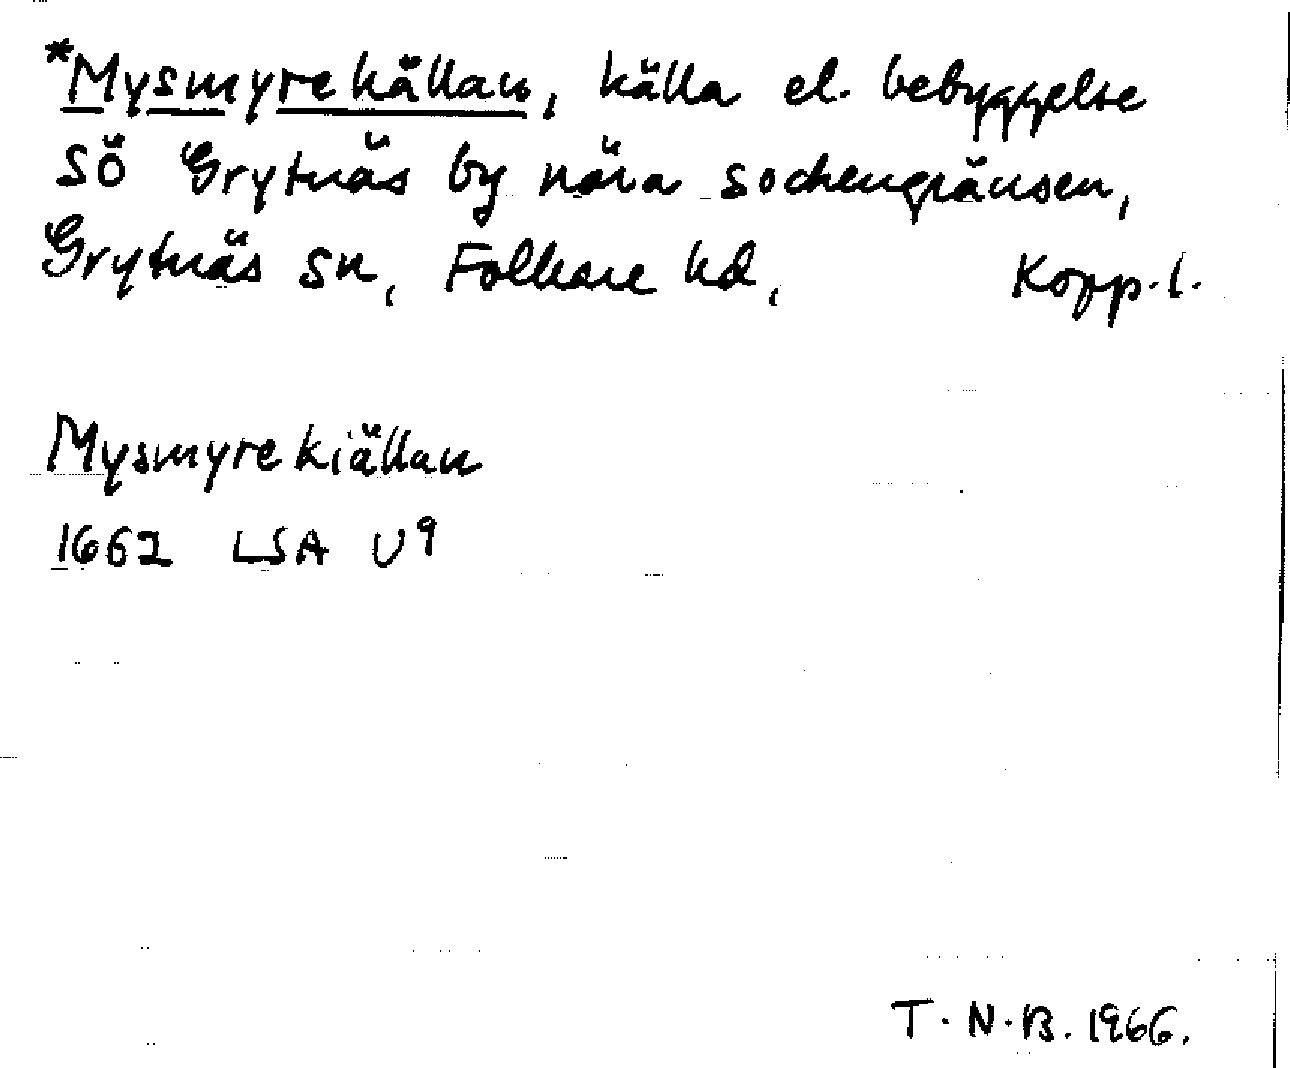 *Mysmyrekällan, källa el. bebyggelse
SÖ Grytnäs by nära sockengränsen,
Grytnäs sn, Folkare hd, Kopp. l.
Mysmyrekiällan
1662 LSA U9
T.N.B. 1966.